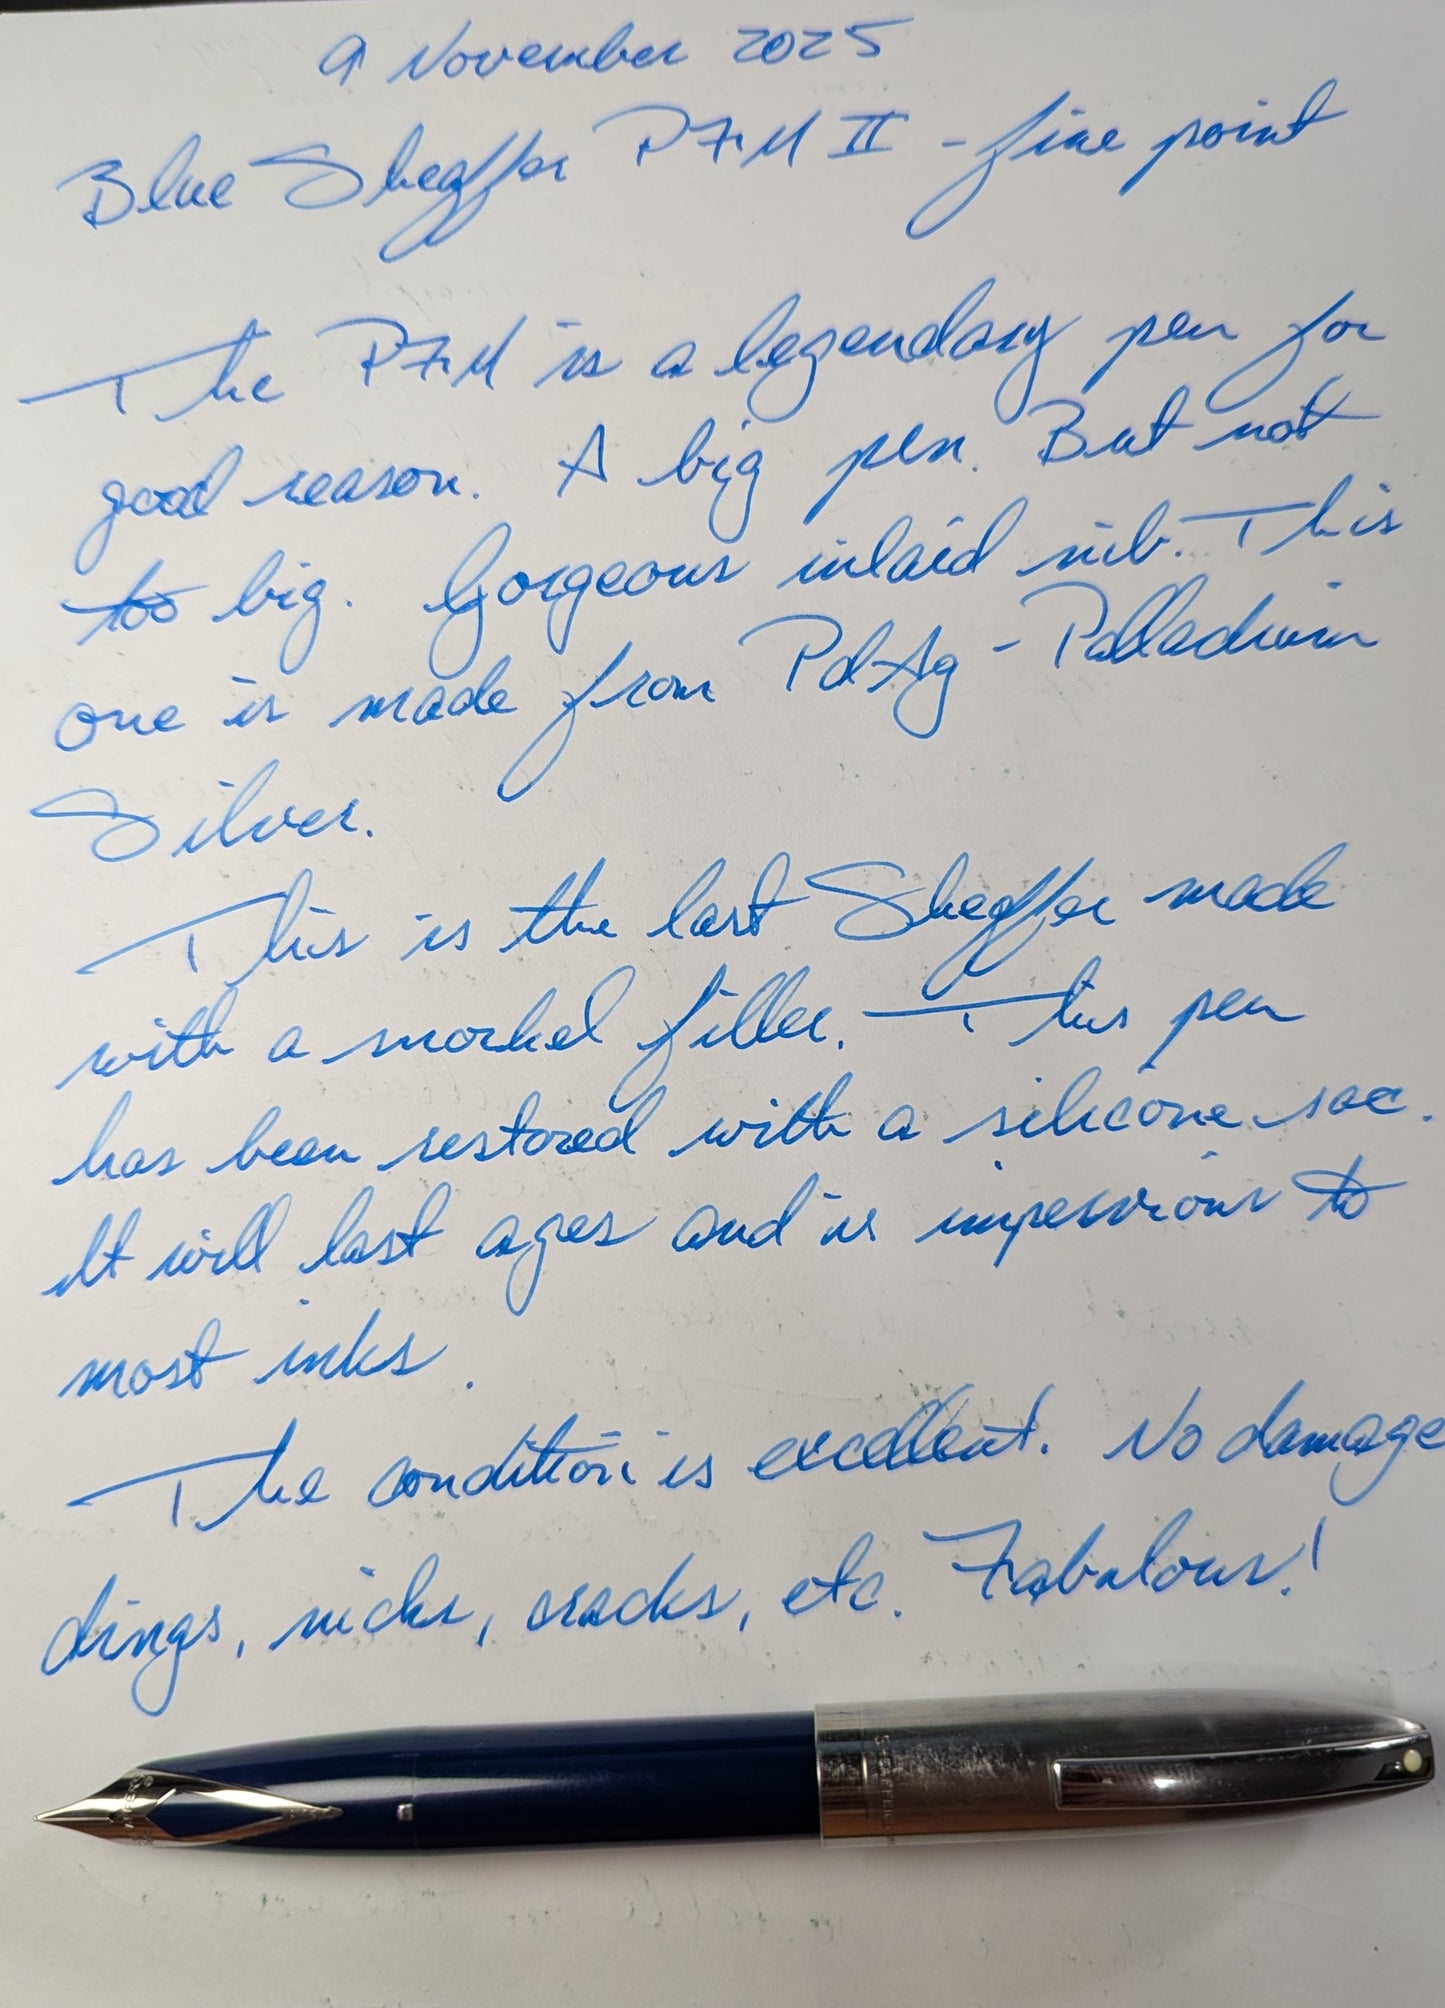 9 November 2025
Blue Sheaffer PFM II - fine point
The PFM is a legendary pen for
good reason. A big pen. But not
too big. Gorgeous inlaid nib. This
one is made from PdAg - Palladium
Silver.
This is the last Sheaffer made
with a snorkel filler. This pen
has been restored with a silicone sac.
It will last ages and is impervious to
most inks.
The condition is excellent. No damage
dings, nicks, cracks, etc. Fabulous!